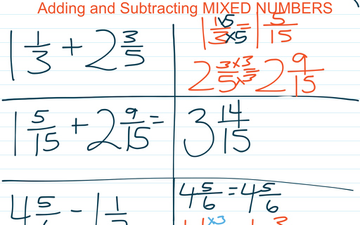 Adding and Subtracting MIXED NUMBERS
1 1/3 + 2 3/5
1 1/3 ×5/×5 = 1 5/15
2 3/5 ×3/×3 = 2 9/15
1 5/15 + 2 9/15 =
3 14/15
4 5/6 - 1 1/
4 5/6 = 4 5/6
×3